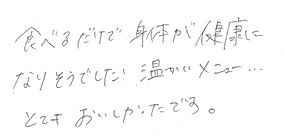 食べるだけで 身体が健康に
なりそうでした! 温かいメニュー…
とても おいしかったです。